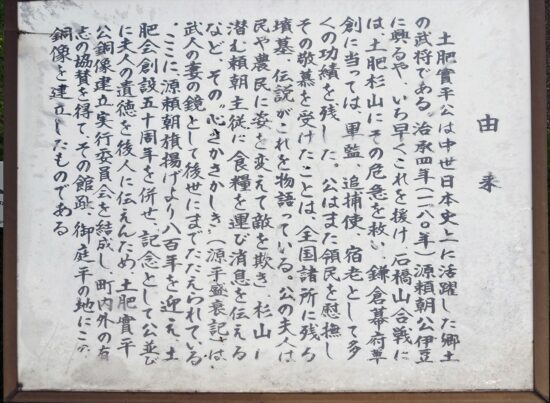 由来
土肥實平公は中世日本史上に活躍した郷土
の武将である。治承四年(一一八〇年)源頼朝公伊豆
に興るや、いち早くこれを援け、石橋山合戦に
は、土肥杉山にその危急を救い、鎌倉幕府草
創に当っては、軍監、追捕使、宿老として多
くの功績を残した。公はまた領民を慰撫し
その敬慕を受けたことは、全国諸所に残る
墳墓、伝説がこれを物語っている。公の夫人は
民や農民に姿を変えて敵を欺き、杉山に
潜む頼朝主従に食糧を運び消息を伝える
など、その〝心さかさかしき〟(源平盛衰記)は、
武人の妻の鏡として後世にまでたたえられている
ここに源頼朝旗揚げより八百年を迎え、土
肥会創設五十周年を併せ、記念として公並び
に夫人の遺徳を後人に伝えんため、土肥實平
公銅像建立実行委員会を結成し、町内外の有
志の協賛を得て、その館趾、御庭平の地にこの
銅像を建立したものである